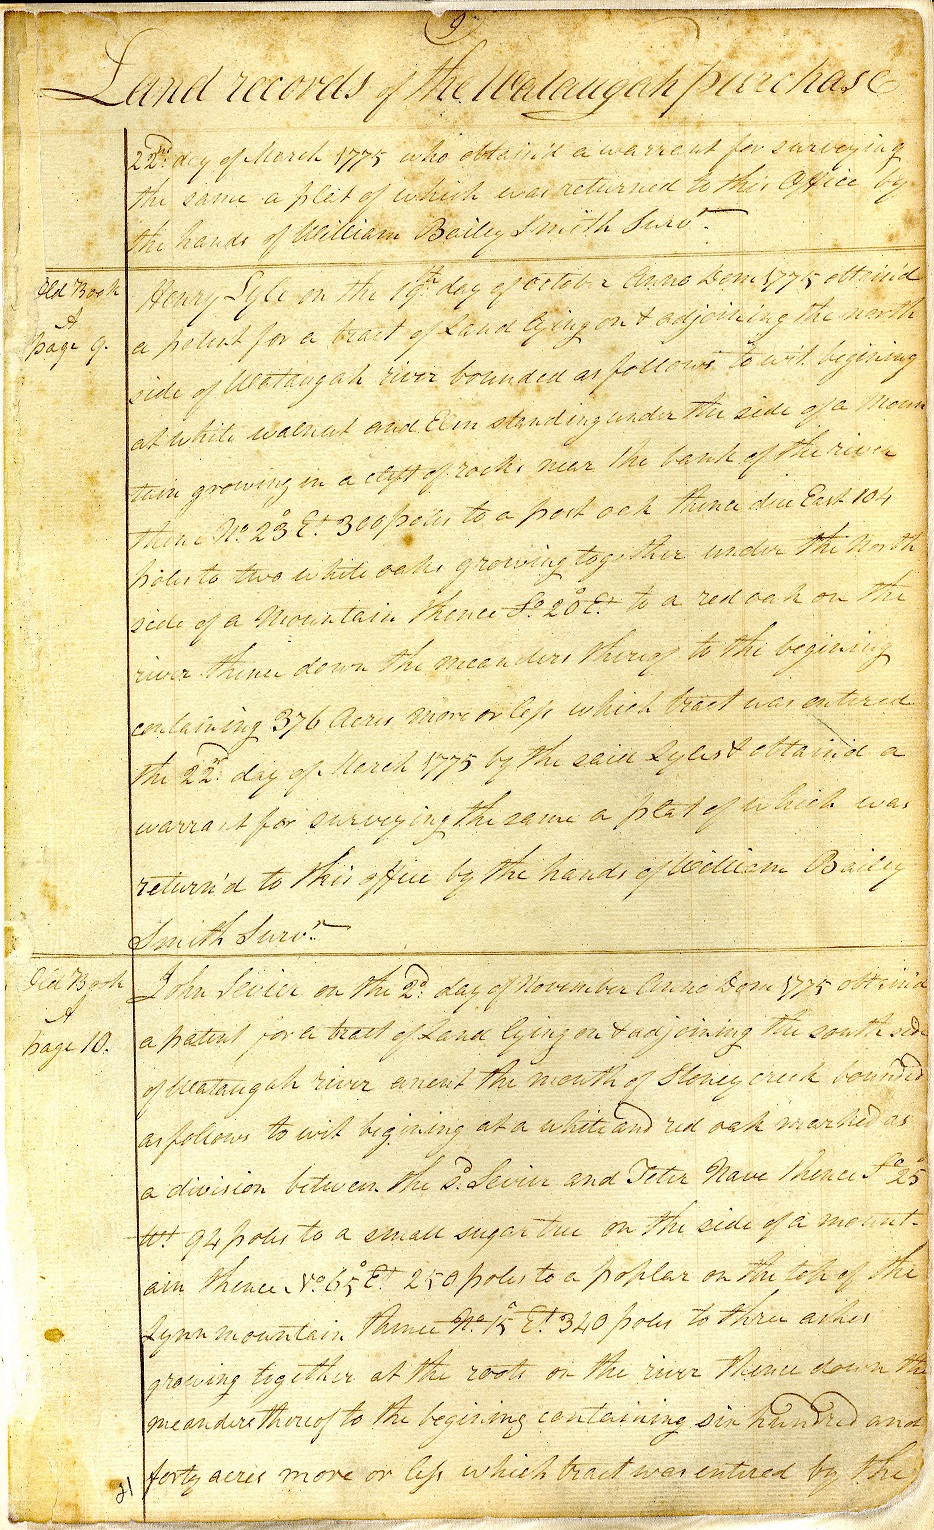 9
Land records of the Wataugah purchase
22nd day of March 1775 who obtain'd a warrant for surveying
the same a plat of which was returned to this Office by
the hands of William Bailey Smith Survr.
Old Book
A
page 9.
Henry Lyle on the 19th day of October Anno Dom 1775 obtain'd
a patent for a tract of Land lying on & adjoining the north
side of Wataugah river bounded as follows to wit begining
at white walnut and Elm standing under the side of a Moun
tain growing in a clift of rocks near the bank of the river
thence No. 23° Et. 300 poles to a post oak thence due East 104
poles to two white oaks growing together under the North
side of a Mountain thence So. 20° Et. to a red oak on the
river thence down the meanders thereof to the begining
containing 376 Acres more or less which tract was entered
the 22nd day of March 1775 by the said Lyles & obtain'd a
warrant for surveying the same a plat of which was
return'd to this office by the hands of William Bailey
Smith Survr.
Old Book
A
page 10.
John Sevier on the 2d. day of November Anno Dom 1775 obtain'd
a patent for a tract of Land lying on & adjoining the south side
of Wataugah river anent the mouth of Stoney creek bounded
as follows to wit begining at a white and red oak marked as
a division between the sd. Sevier and Teter Nave thence So 25°
Wt. 94 poles to a small sugar tree on the side of a mount-
ain thence No. 65° Et. 250 poles to a poplar on the top of the
Lynn mountain thence No. 15° Et. 340 poles to three ashes
growing together at the roots on the river thence down the
meanders thereof to the begining containing six hundred and
forty acres more or less which tract was entered by the